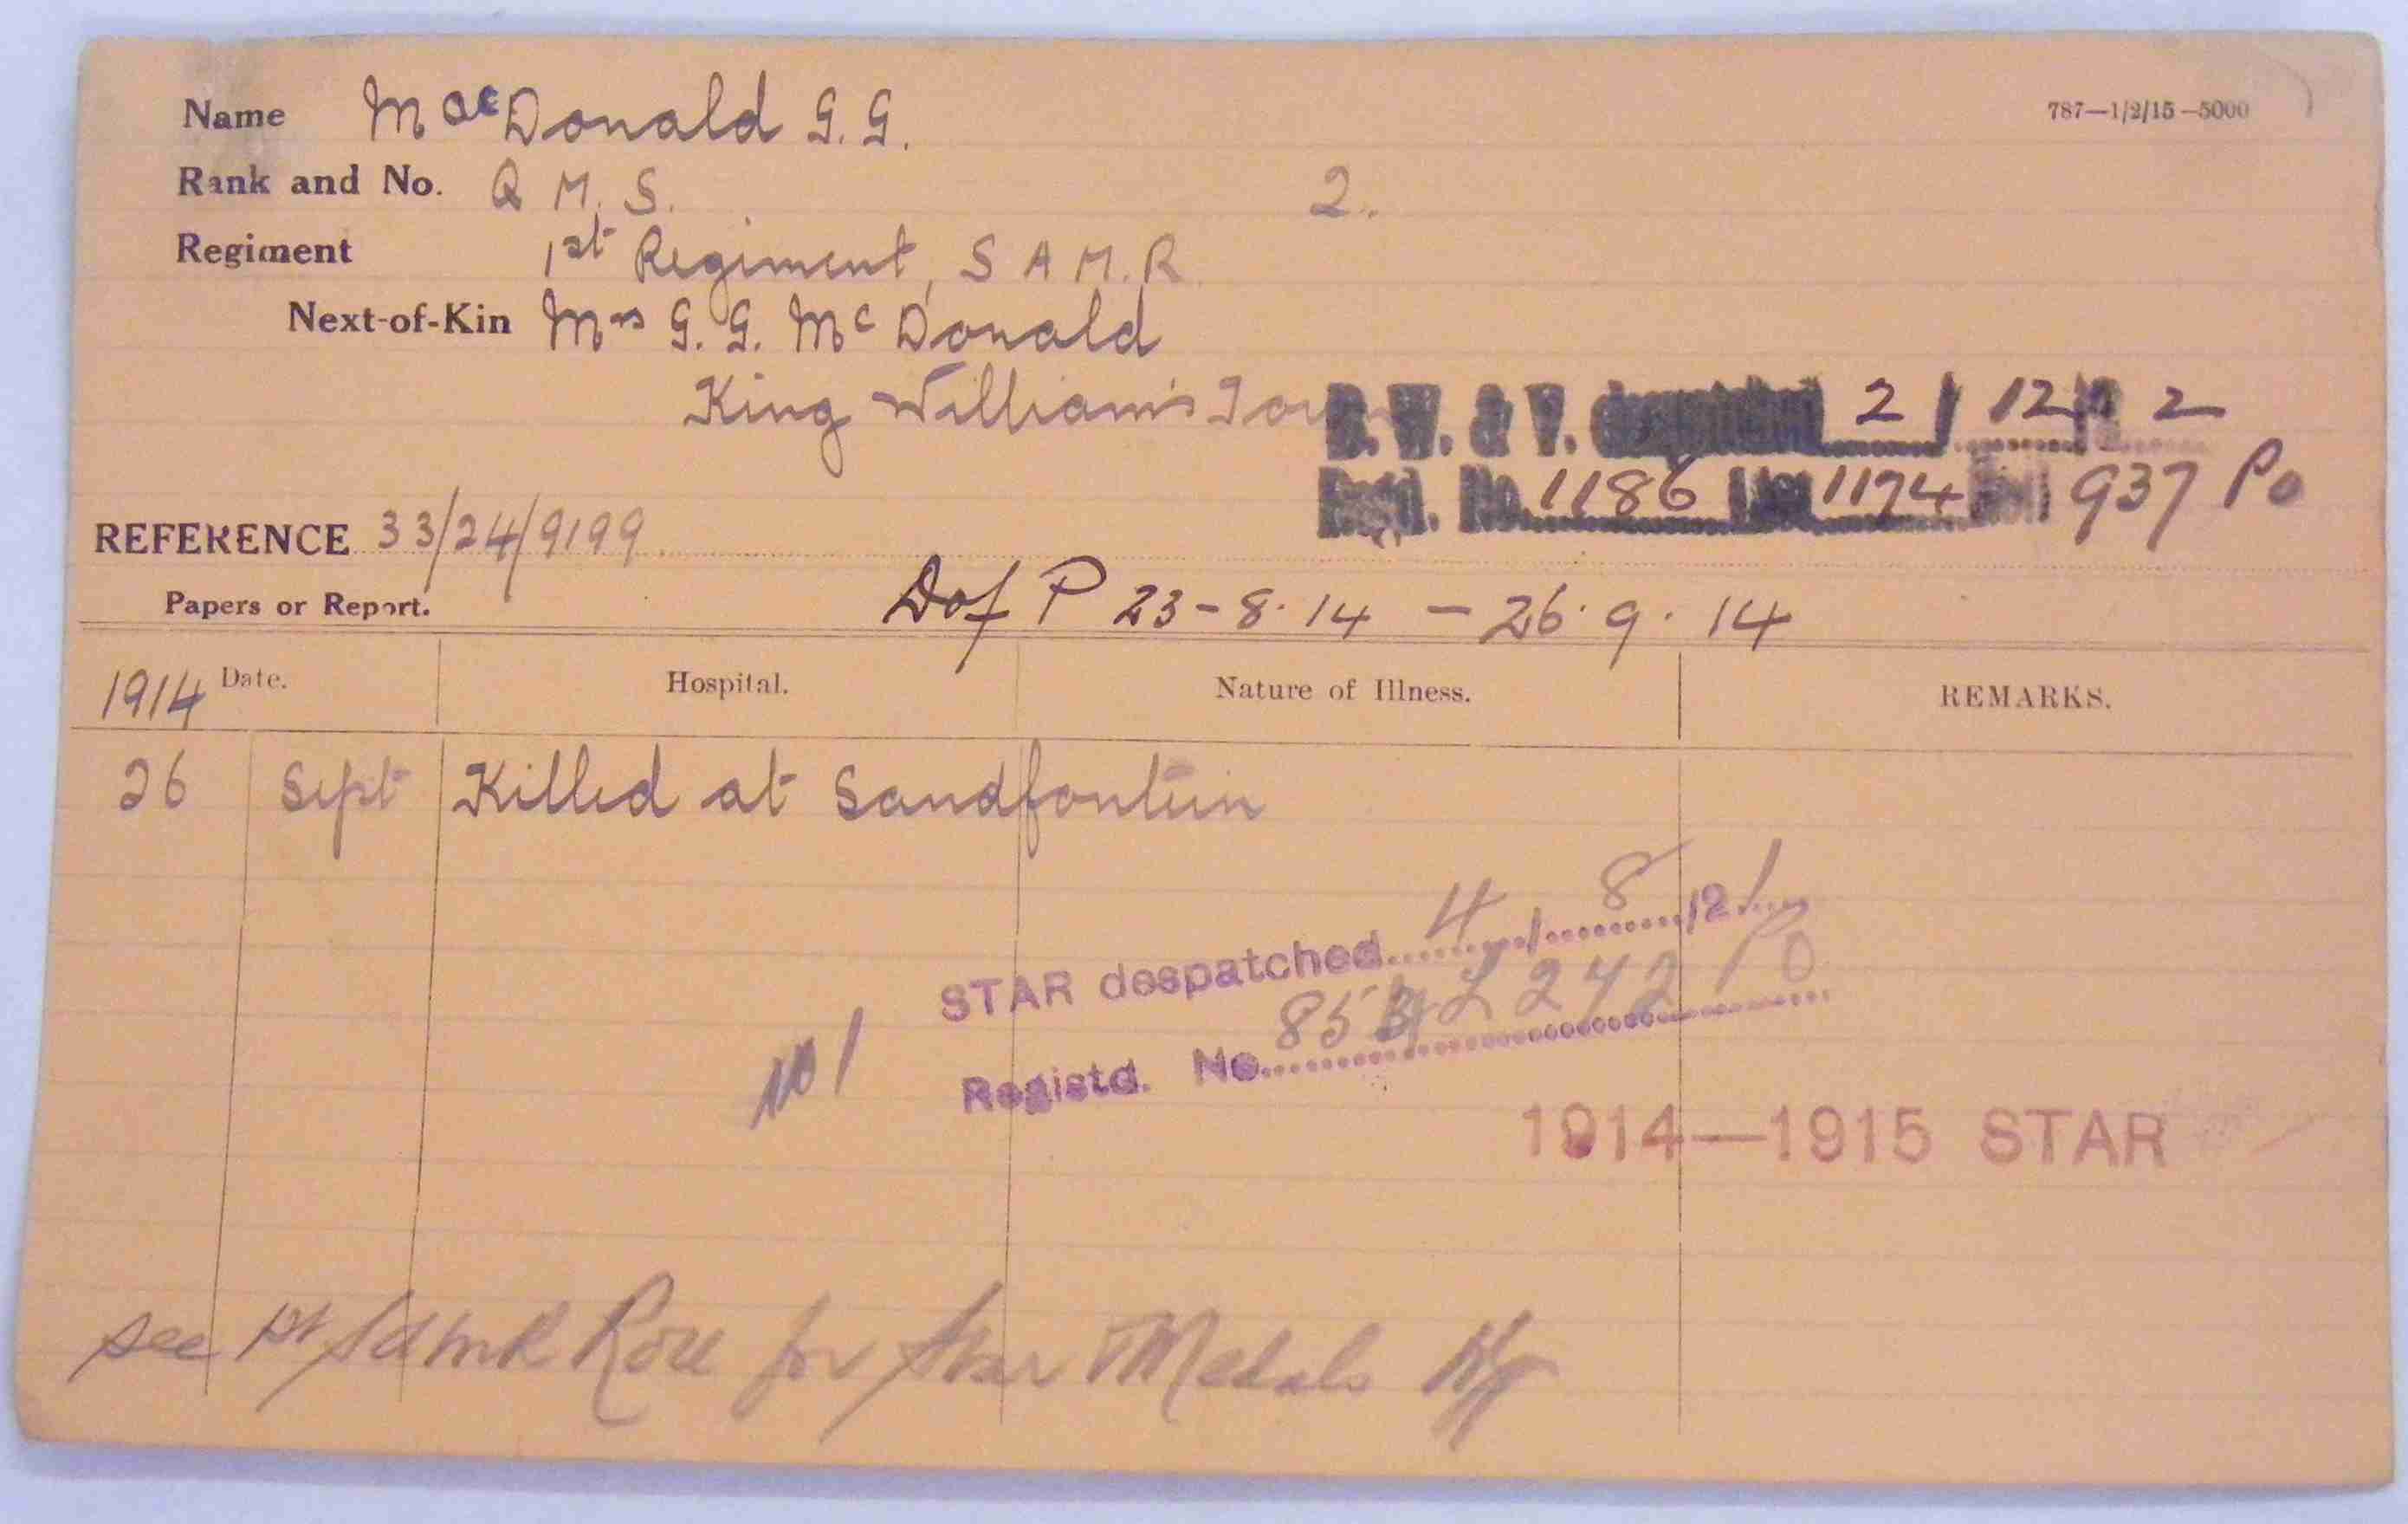 787—1/2/15—5000
Name MacDonald G. G.
Rank and No. Q M. S. 2.
Regiment 1st Regiment, S A M. R
Next-of-Kin Mrs G. G. McDonald
King William's Town
B. W. & V. despatched 2 / 12 / 2
Regd. No. 1186 1174 937 Po
REFERENCE 33/24/9199
Papers or Report. D of P 23-8.14 - 26.9.14
1914 Date. Hospital. Nature of Illness. REMARKS.
26 Sept Killed at Sandfontein
STAR despatched 4 / 8 /21
Registd. No. 853 L 242 PO
No 1
1914—1915 STAR
see 1st SAMR Roll for Star & Medals